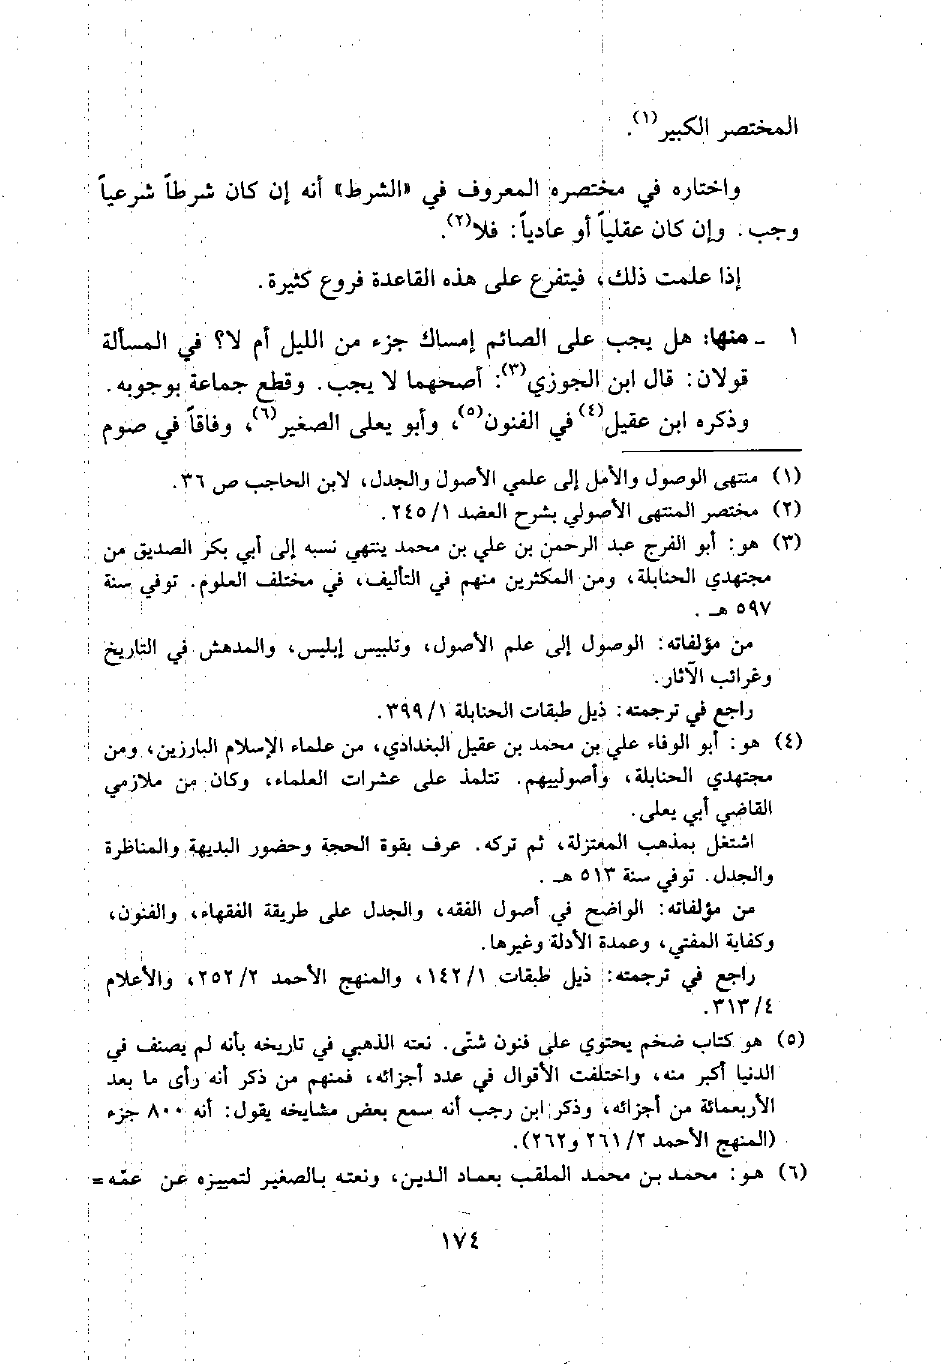 المختصر الكبير(١).
واختاره في مختصره المعروف في «الشرط» أنه إن كان شرطاً شرعياً
وجب. وإن كان عقلياً أو عادياً: فلا(٢).
إذا علمت ذلك، فيتفرع على هذه القاعدة فروع كثيرة.
١ ـ منها: هل يجب على الصائم إمساك جزء من الليل أم لا؟ في المسألة
قولان: قال ابن الجوزي(٣): أصحهما لا يجب. وقطع جماعة بوجوبه.
وذكره ابن عقيل(٤) في الفنون(٥)، وأبو يعلى الصغير(٦)، وفاقاً في صوم
(١) منتهى الوصول والأمل إلى علمي الأصول والجدل، لابن الحاجب ص ٣٦.
(٢) مختصر المنتهى الأصولي بشرح العضد ٢٤٥/١.
(٣) هو: أبو الفرج عبد الرحمن بن علي بن محمد ينتهي نسبه إلى أبي بكر الصديق من
مجتهدي الحنابلة، ومن المكثرين منهم في التأليف، في مختلف العلوم. توفي سنة
٥٩٧ هـ.
من مؤلفاته: الوصول إلى علم الأصول، وتلبيس إبليس، والمدهش في التاريخ
وغرائب الآثار.
راجع في ترجمته: ذيل طبقات الحنابلة ٣٩٩/١.
(٤) هو: أبو الوفاء علي بن محمد بن عقيل البغدادي، من علماء الإسلام البارزين، ومن
مجتهدي الحنابلة، وأصولييهم. تتلمذ على عشرات العلماء، وكان من ملازمي
القاضي أبي يعلى.
اشتغل بمذهب المعتزلة، ثم تركه. عرف بقوة الحجة وحضور البديهة والمناظرة
والجدل. توفي سنة ٥١٣ هـ.
من مؤلفاته: الواضح في أصول الفقه، والجدل على طريقة الفقهاء، والفنون،
وكفاية المفتي، وعمدة الأدلة وغيرها.
راجع في ترجمته: ذيل طبقات ١٤٢/١، والمنهج الأحمد ٢٥٢/٢، والأعلام
٣١٣/٤.
(٥) هو كتاب ضخم يحتوي على فنون شتّى. نعته الذهبي في تاريخه بأنه لم يصنف في
الدنيا أكبر منه، واختلفت الأقوال في عدد أجزائه، فمنهم من ذكر أنه رأى ما بعد
الأربعمائة من أجزائه، وذكر ابن رجب أنه سمع بعض مشايخه يقول: أنه ٨٠٠ جزء
(المنهج الأحمد ٢٦١/٢ و٢٦٢).
(٦) هو: محمد بن محمد الملقب بعماد الدين، ونعته بالصغير لتمييزه عن عمّه =
١٧٤